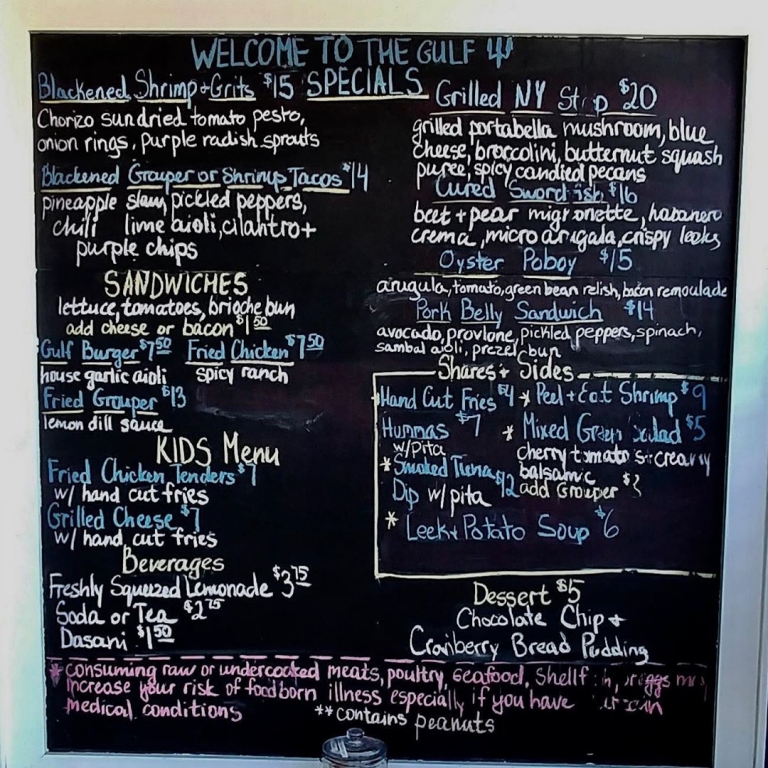 WELCOME TO THE GULF
SPECIALS
Blackened Shrimp + Grits $15
Chorizo sundried tomato pesto,
onion rings, purple radish sprouts
Blackened Grouper or Shrimp Tacos $14
pineapple slaw, pickled peppers,
chili lime aioli, cilantro +
purple chips
SANDWICHES
lettuce, tomatoes, brioche bun
add cheese or bacon $1.50
Gulf Burger $7.50 Fried Chicken $7.50
house garlic aioli spicy ranch
Fried Grouper $13
lemon dill sauce
KIDS Menu
Fried Chicken Tenders $7
w/ hand cut fries
Grilled Cheese $7
w/ hand cut fries
Beverages
Freshly Squeezed Lemonade $3.75
Soda or Tea $2.75
Dasani $1.50
Grilled NY St p $20
grilled portabella mushroom, blue
cheese, broccolini, butternut squash
puree, spicy candied pecans
Cured Sword ish $16
beet + pear mig onette, habanero
crema, micro arugala, crispy leeks
Oyster Poboy $15
arugula, tomato, green bean relish, bacon remoulade
Pork Belly Sandwich $14
avocado, provlone, pickled peppers, spinach,
sambal aioli, prezel bun
Shares + Sides
Hand Cut Fries $4
Hummas $7
w/Pita
* Smoked Tuna
Dip w/pita $12
* Peel + Eat Shrimp $9
* Mixed Green Salad $5
cherry tomato
balsamic
add Grouper
* Leek + Potato Soup $6
Dessert $5
Chocolate Chip +
Cranberry Bread Pudding
* consuming raw or undercooked meats, poultry, seafood,
increase your risk of foodborn illness especially if you have
medical conditions
** contains peanuts